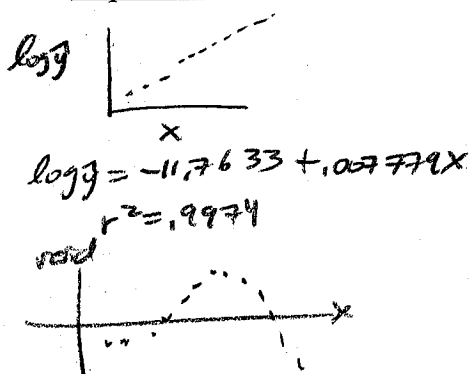 log ŷ
x
log ŷ = -11.7633 + .007779x
r² = .9974
resid
x